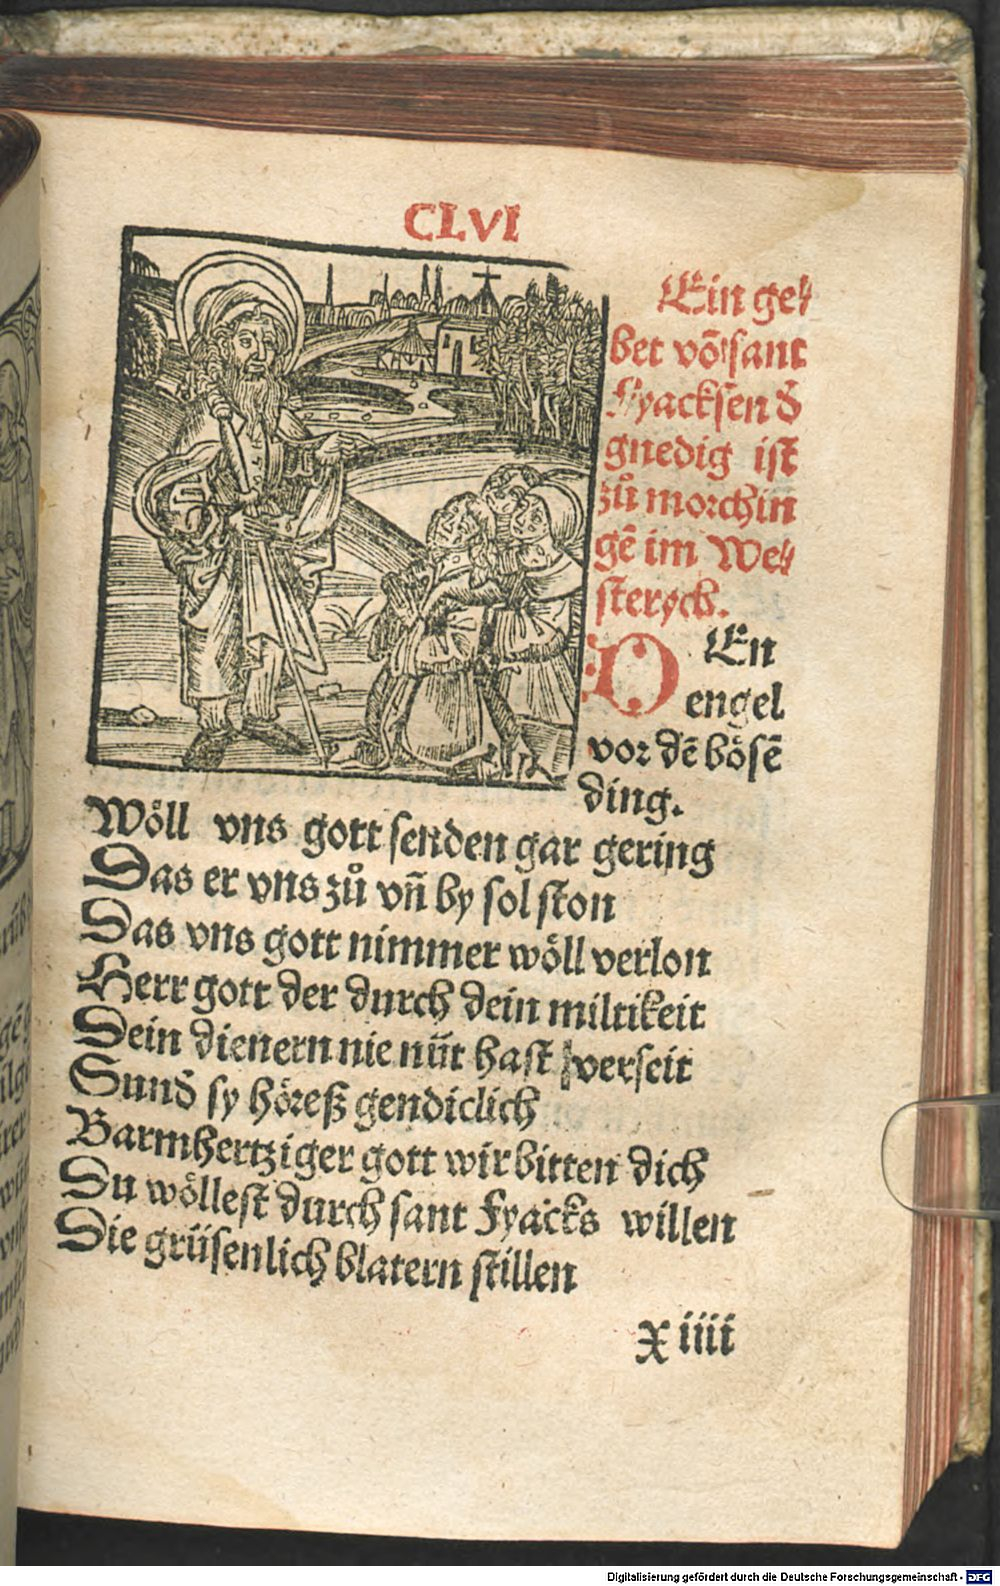 CLVI
Ein ge⸗
bet võ sant
Fyacksen ď
gnedig ist
zů morchin
gẽ im We⸗
steryck.
DEn
engel
vor dẽ bösẽ
ding.
Wöll vns gott senden gar gering
Das er vns zů vñ by sol ston
Das vns gott nimmer wöll verlon
Herr gott der durch dein miltikeit
Dein dienern nie nüt hast verseit
Sunď sy höreß gendiclich
Barmhertziger gott wir bitten dich
Du wöllest durch sant Fyacks willen
Die grüsenlich blatern stillen
x iiii
Digitalisierung gefördert durch die Deutsche Forschungsgemeinschaft - DFG